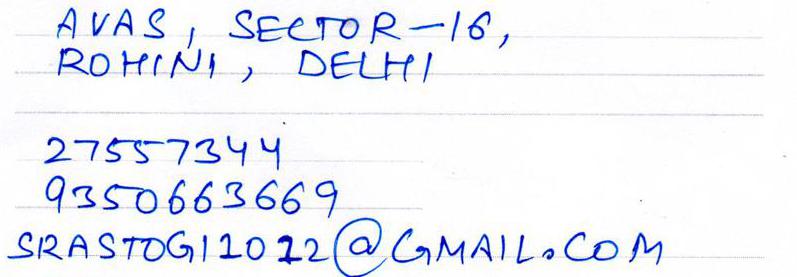 AVAS, SECTOR-16,
ROHINI, DELHI
27557344
9350663669
SRASTOGI1012@GMAIL.COM